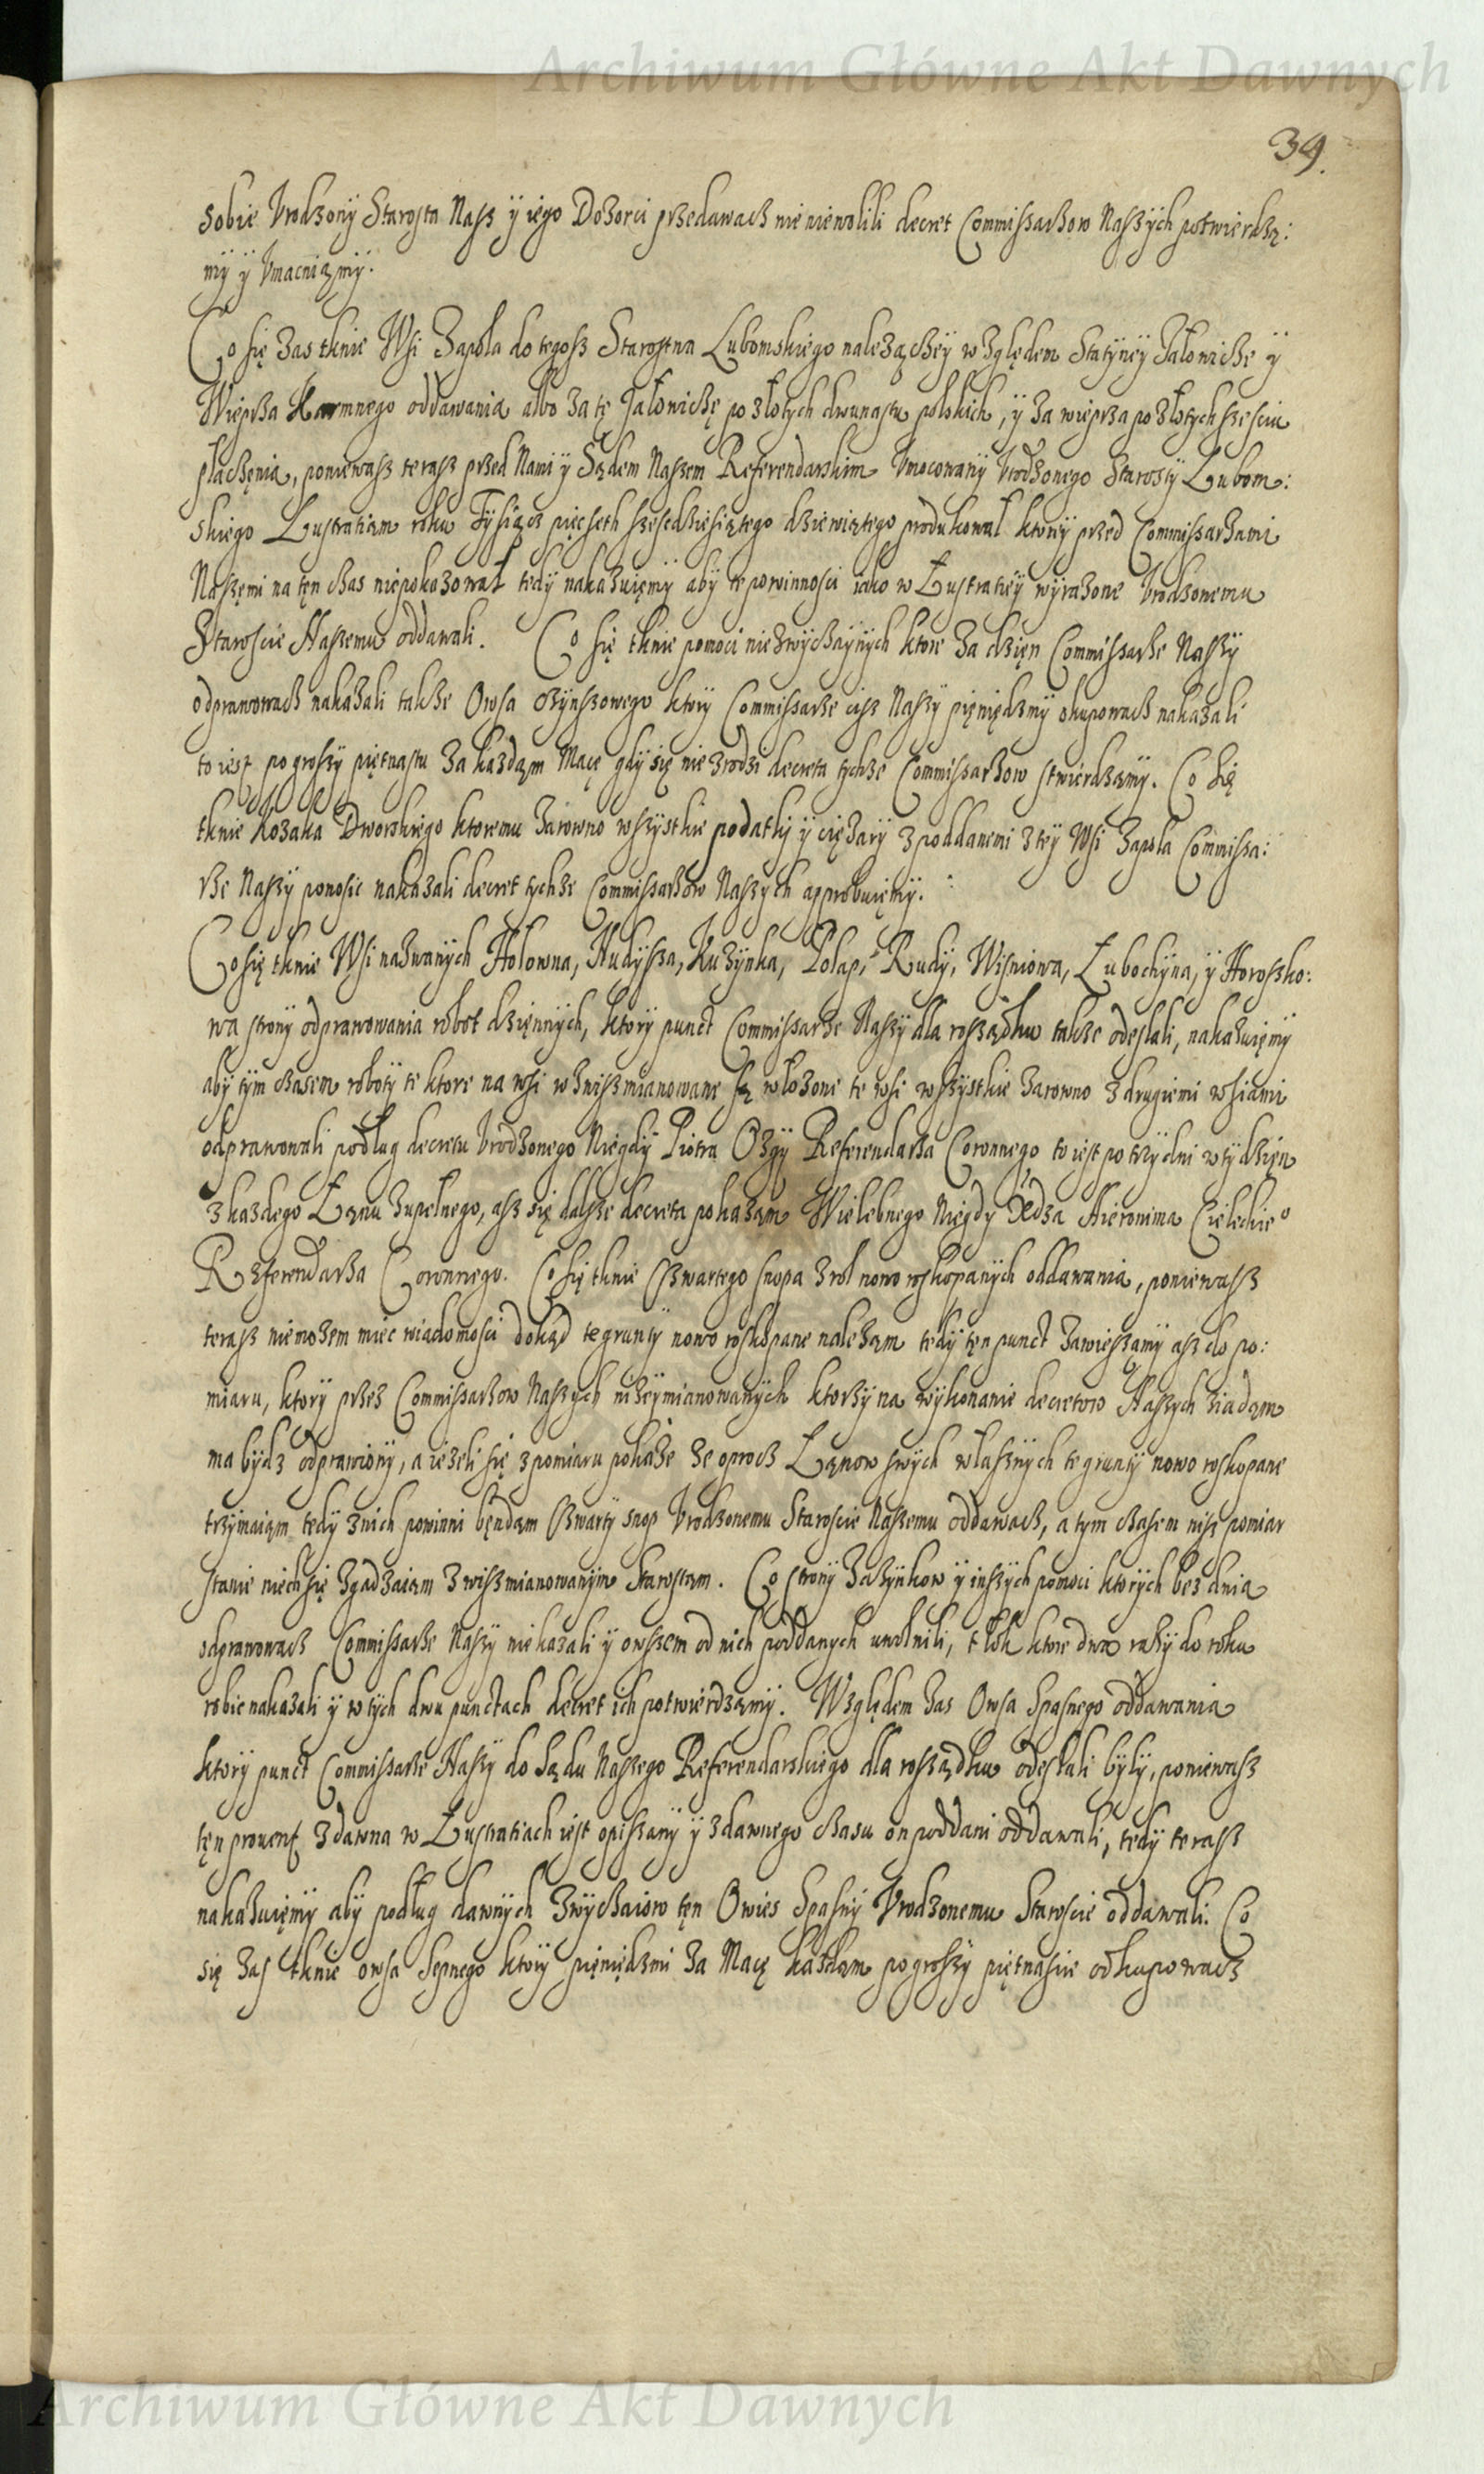 Archiwum Główne Akt Dawnych
39.
sobie Vrodzony Starosta Nasz y iego Dozorci przedawacz nie niewolili decret Commissarzow Naszych potwierdzą:
my y Vmacniamy.
Co się zas tknie Wsi Zapola do tegosz Starostwa Lubomskiego należączey względem Statyney Jałowicze y
Wieprza Karmnego oddawania albo za tę Jałowiczę po złotych dwunastu polskich, y za wieprza po złotych szesciu
płaczęnia, poniewasz terasz przed Nami y Sądem Naszem Referendarskim Vmocowany Vrodzonego Starosty Lubom:
skiego Lustratiam roku Tysiącz pięcseth szescdziesiątego dziewiątego produkował ktory przed Commissarzami
Naszemi na tęn czas niepokazował tedy nakazuięmy aby te powinnosci iako w Lustratiey wyrazone Vrodzonemu
Staroscie Naszemu oddawali. Co się tknie pomoci niezwyczaynych ktore za dzięn Commissarze Naszy
odprawowacz nakazali takze Owsa czynszowego ktory Commissarze cisz Naszy pięniędzmy okupowacz nakazali
to iest po groszy piętnastu za kazdąm Macę gdy się nie zrodzi decreta tychze Commissarzow stwierdzamy. Co się
tknie Kozaka Dworskiego ktoremu zarowno wszystkie podatki y ciężary z poddanemi z tey Wsi Zapola Commissa:
rze Naszy ponosic nakazali decret tychze Commissarzow Naszych approbuięmy.
Co się tknie Wsi nazwanych Hołowna, Hudysza, Kuzynka, Połap, Rudy, Wisniowa, Lubochyna, y Horoszko:
wa strony odprawowania robot dziennych, ktory punct Commissarze Naszy dla rosządku takze odesłali, nakazuięmy
aby tym czasem roboty te ktore na wsi wznisz mianowane są włozone te wsi wszystkie zarowno z drugiemi wsiami
odprawowali podług decretu Vrodzonego Niegdy Piotra Ozgi Referendarza Coronnego to iest po trzy dni w tydzięn
z kazdego Łanu zupełnego, asz się dalsze decreta pokazam Wielebnego Niegdy Xdza Hieronima Cieleckie°
Referendarza Coronnego. Co się tknie czwartego snopa z rol nowo roskopanych oddawania, poniewasz
terasz niemozem miec wiadomosci dokąd te grunty nowo roskopane należam tedy tęn punct zawieszamy asz do po:
miaru, ktory przez Commissarzow Naszych nizeymianowanych ktorzy na wykonanie decretow Naszych ziadąm
ma bydz odprawiony, a iezeli się z pomiaru pokaże ze oprocz Łanow swych własznych te grunty nowo roskopane
trzymaiąm tedy z nich powinni będam czwarty snop Vrodzonemu Staroscie Naszemu oddawacz, a tym czasem nisz pomiar
stanie niech się zgadzaiąm z wisz mianowanym Starostam. Co strony Zazynkow y inszych pomoci ktorych bez dnia
odprawowacz Commissarze Naszy nie kazali y owszem od nich poddanych uwolnili, tłok ktore dwa razy do roku
robic nakazali y w tych dwu punctach decret ich potwierdzamy. Względem zas Owsa Spasnego oddawania
ktory punct Commissarze Naszy do Sądu Naszego Referendarskiego dla rosządku odesłali byly, poniewasz
tęn provent z dawna w Lustratiach iest opiszany y z dawnego czasu on poddani oddawali, tedy terasz
nakazuięmy aby podług dawnych zwyczaiow tęn Owies Spasny Vrodzonemu Staroscie oddawali. Co
się zas tknie owsa Sepnego ktory pięniędzmi za Macę kazdam po groszy piętnascie odkupowacz
Archiwum Główne Akt Dawnych